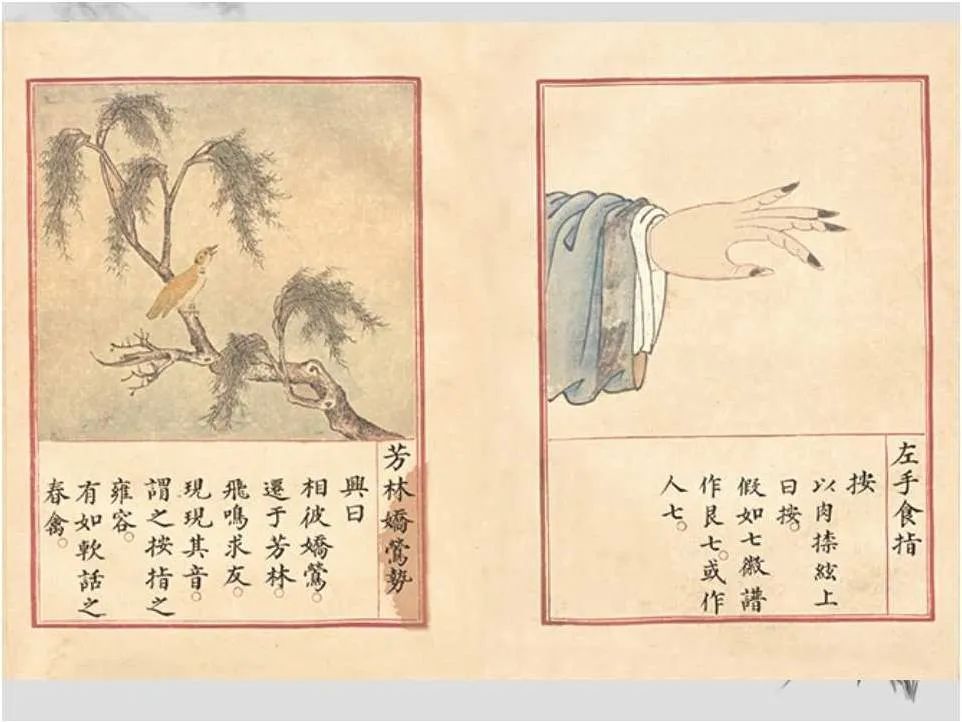 左手食指
按
以肉捺絃上
曰按。
假如七徽譜
作艮七。或作
人七。
芳林嬌鶯勢
興曰
相彼嬌鶯。
還于芳林。
飛鳴求友。
現現其音。
謂之按指之
雍容。
有如軟話之
春禽。